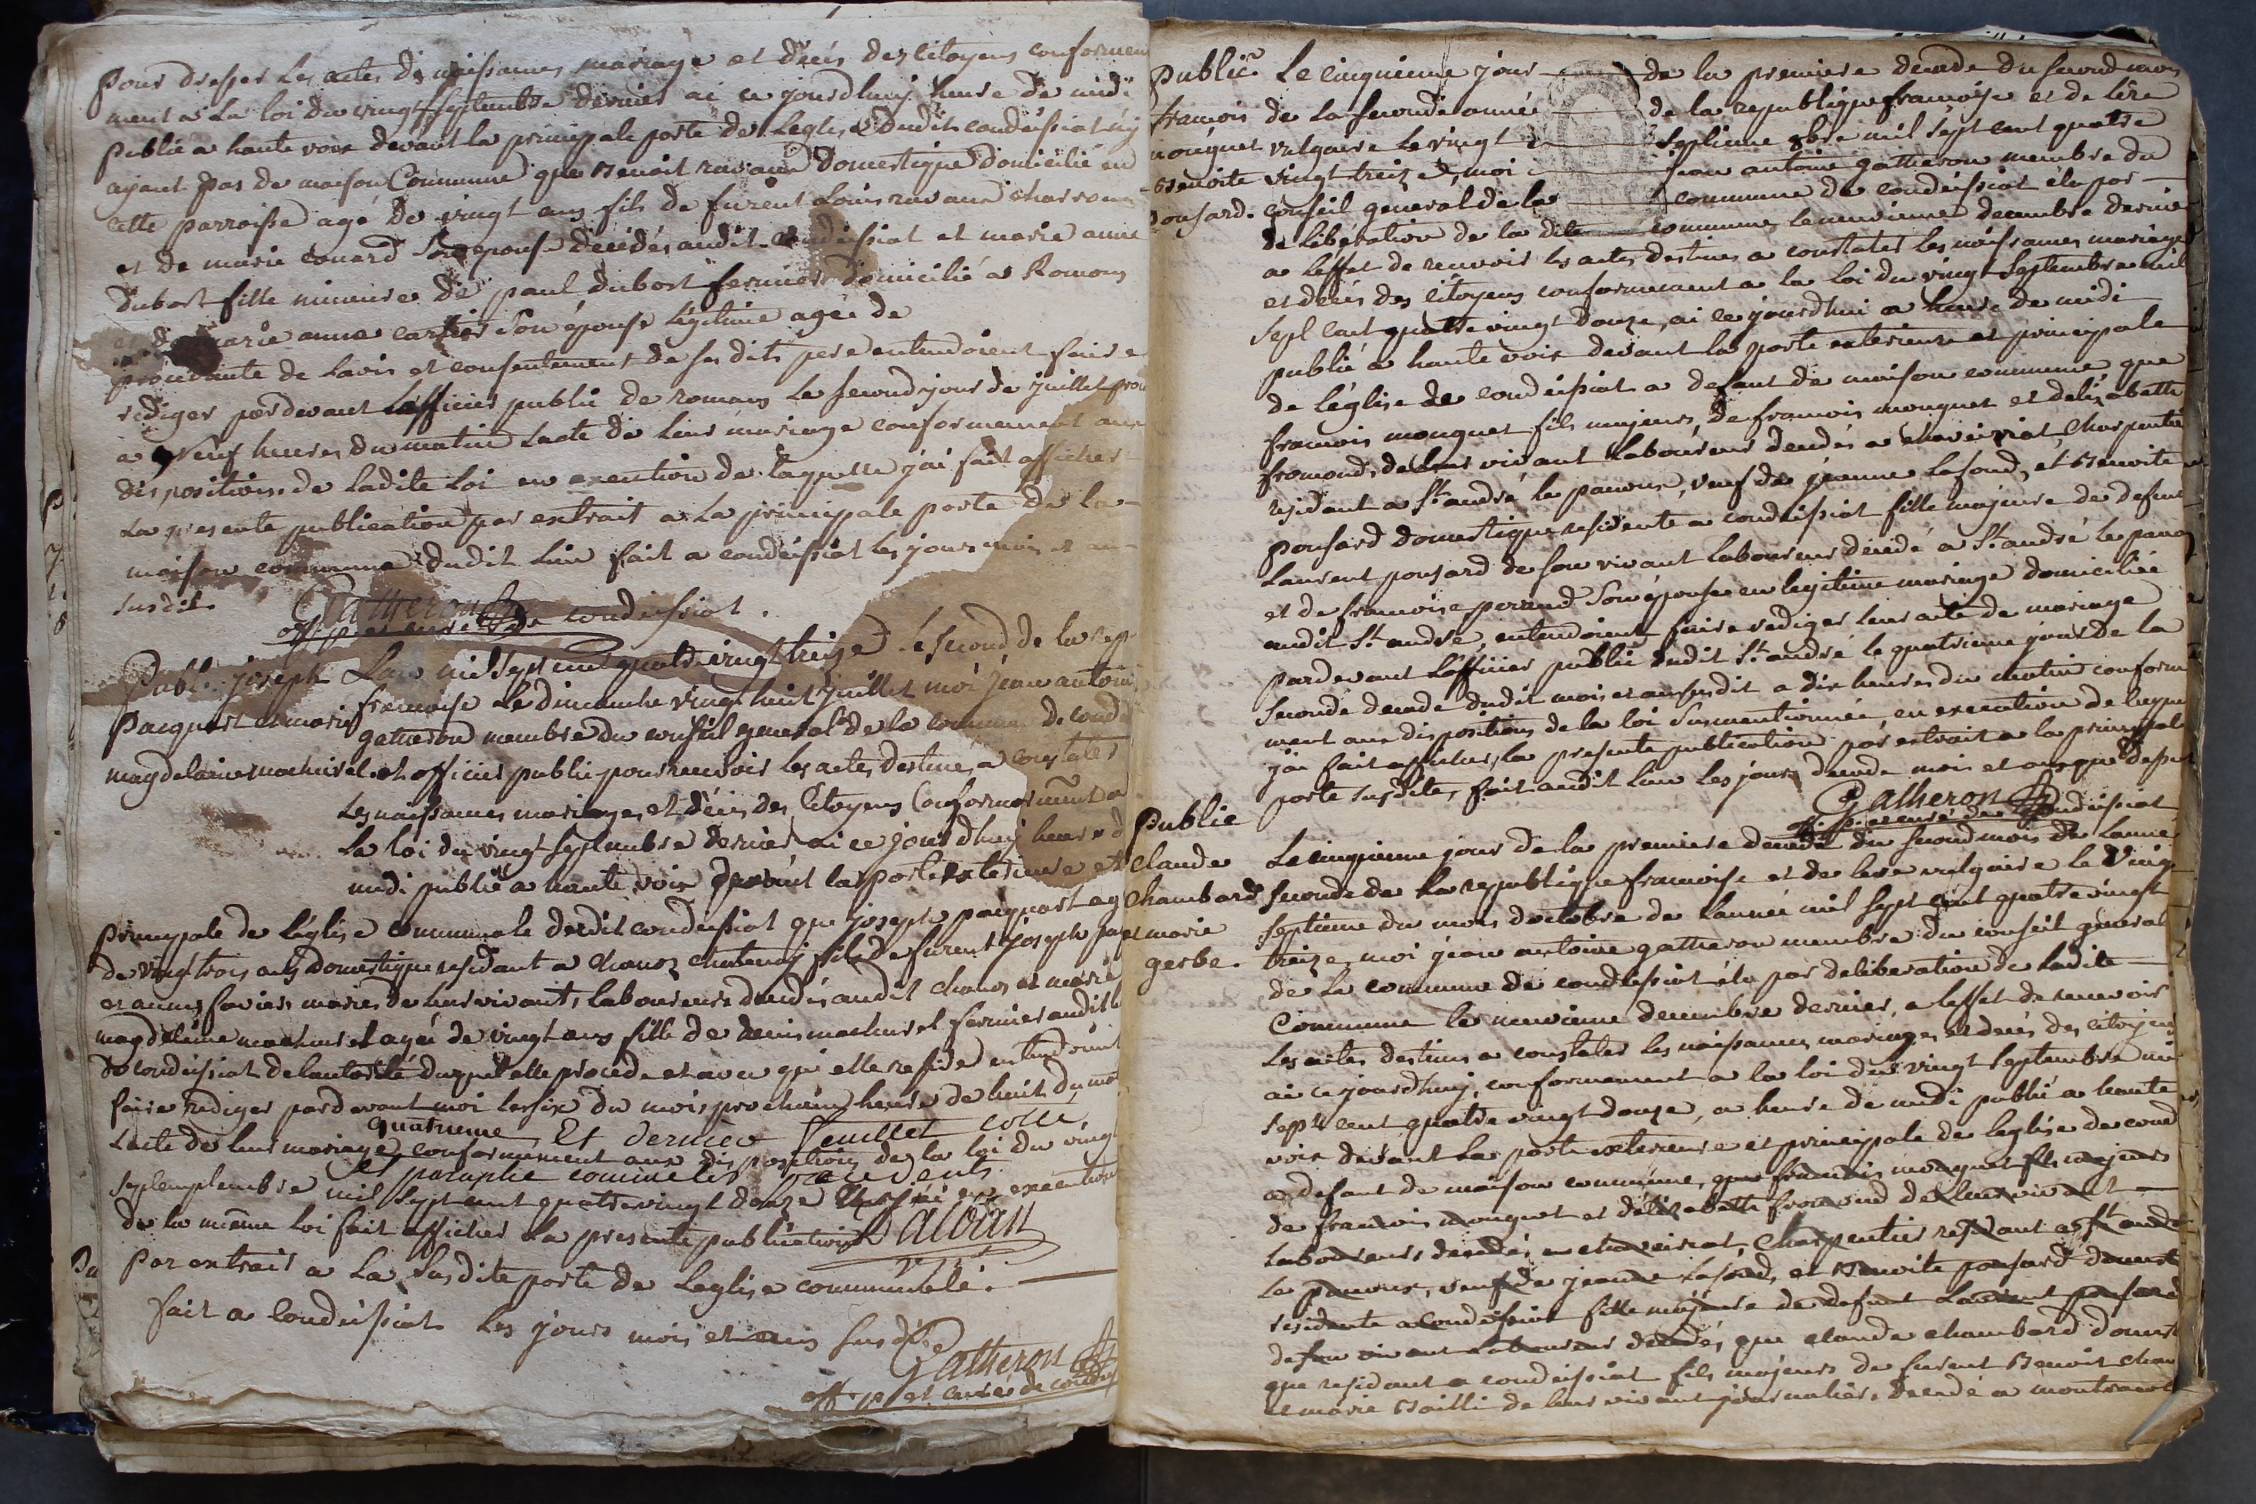 pour dresser les actes de naissances mariage et décés des citoyens conformem
ment a la loi du vingt septembre dernier ai ce jourdhuy heure de midi
publié a haute voix devant la principale porte de leglise dudit condeissiat n'y
ayant pas de maison Commune que Benoit ravaux domestique domicilié en
cette parroisse agé de vingt ans fils de furent Louis ravaux charron
et de marie couard son epouse décédés audit condeissiat et marie anne
dubost fille mineure de paul dubost fermier domicilié a Romans
et de marie anne cartier son épouse légitime agée de
procédante de lavis et consentement de ses dits pere entendoient faire
rediger pardevant lofficier public de romans le second jour de juillet proch
a Neuf heures du matin lacte de leur mariage conformement aux
dispositions de ladite loi en execution de laquelle j'ai fait afficher
la presente publication par extrait a la principale porte de la
maison commune dudit lieu fait a condeissiat les jours mois et an
susdits
Gatheron
off. p. et curé de condeissiat.
Publ. joseph Lan mil sept cent quatre vingt treize le second de la rep
francoise le dimanche vingt huit juillet moi jean antoine
Pacquart et marie gatheron membre du conseil general de la commune de cond
magdelaine machurel et officier public pour recevoir les actes destinés a constater
les naissances mariages et décés des Citoyens Conformement a
la loi du vingt septembre dernier ai ce jourdhuy heure d
midi publié a haute voix devant la porte exterieure et
principale de l'église communale dudit condeissiat que joseph pacquart ag
de vingt trois ans domestique residant a chanoz chatenay fils de furent joseph pa
et anne favier mariés de leur vivant, laboureurs décédés audit chanoz et marie
magdeleine machurel agée de vingt ans fille de denis machurel fermier audit l
de condeissiat de lautorité duquel elle procede et avec qui elle reside entendoient
faire rediger pardevant moi le six du mois prochain heure de huit du mat
lacte de leur mariage conformement aux dispositions de la loi du vingt
quatrieme Et dernier feuillet cotté
septemplembre mil sept cent quatre vingt douze en execution
et paraphé comme les precedents
de la même loi fait afficher la presente publication
par extrait a la susdite porte de leglise communale.
fait a condeissiat les jours mois et an susdits
Gatheron
off. p. et curé de condeis
Public.on Le cinquieme jour de la premiere decade du second mois
francois de la seconde année de la republique francoise et de lère
mouguet vulgaire le vingt septieme 8bre mil sept cent quatre
Benoite vingt treize, moi jean antoine gatheron membre du
ponsard. conseil general de la commune de condeissiat élu par
de libération de la dite commune le neuvieme decembre dernier
a leffet de recevoir les actes destinés a constater les naissances mariages
et décés des citoyens conformement a la loi du vingt septembre mil
sept cent quatre vingt douze, ai ce jourdhui a heure de midi
publié a haute voix devant la porte exterieure et principale
de l'église de condeissiat a defaut de maison commune que
francois mouguet fils majeur, de francois mouguet et delizabette
fromond, de leur vivant laboureurs décédés a chaveiriat, charpentier
residant a St andré le panoux, veuf de jeanne lafond, et Benoite
ponsard domestique residente a condeissiat fille majeure de defunt
laurent ponsard de son vivant laboureur décédé a St andré le panou
et de francoise perraud son épouse en legitime mariage domiciliée
audit St andré, entendoient faire rediger leur acte de mariage
pardevant lofficier public dudit St andré le quatrieme jour de la
seconde decade dudit mois et an susdit a dix heures du matin conform
ment aux dispositions de la loi susmentionnée, en execution de laque
j'ai fait afficher, la presente publication par extrait a la principale
porte susdite, fait audit lieu les jour decade mois et an que dessus
Gatheron
off. p. et curé de condeissiat
Public Le cinquieme jour de la premiere decade du second mois de l'année
claude
chambard seconde de la republique francoise et de lere vulgaire le vingt
septieme du mois doctobre de l'année mil sept cent quatre vingt
et marie treize moi jean antoine gatheron membre du conseil general
gerbe. de la commune de condeissiat élu par deliberation de ladite
Commune le neuvieme decembre dernier, a leffet de recevoir
les actes destinés a constater les naissances mariages et décés des citoyens
ai ce jourdhuy, conformement a la loi du vingt septembre mil
sept cent quatre vingt douze, a heure de midi publié a haute
voix devant la porte exterieure et principale de leglise de cond
a defaut de maison commune, que francois mouguet fils majeur
de francois mouguet et délizabette fromond de leur vivant
laboureurs décédés a chaveiriat, charpentier residant a St andré
le panoux, veuf de jeanne lafond, et Benoite ponsard domest
residente a condeissiat fille majeure de defunt laurent ponsard
de son vivant laboureur décédé, que claude chambard domest
que residant a condeissiat fils majeur de furent Benoit cham
et marie Bailli de leur vivant journaliers décédé a montrac